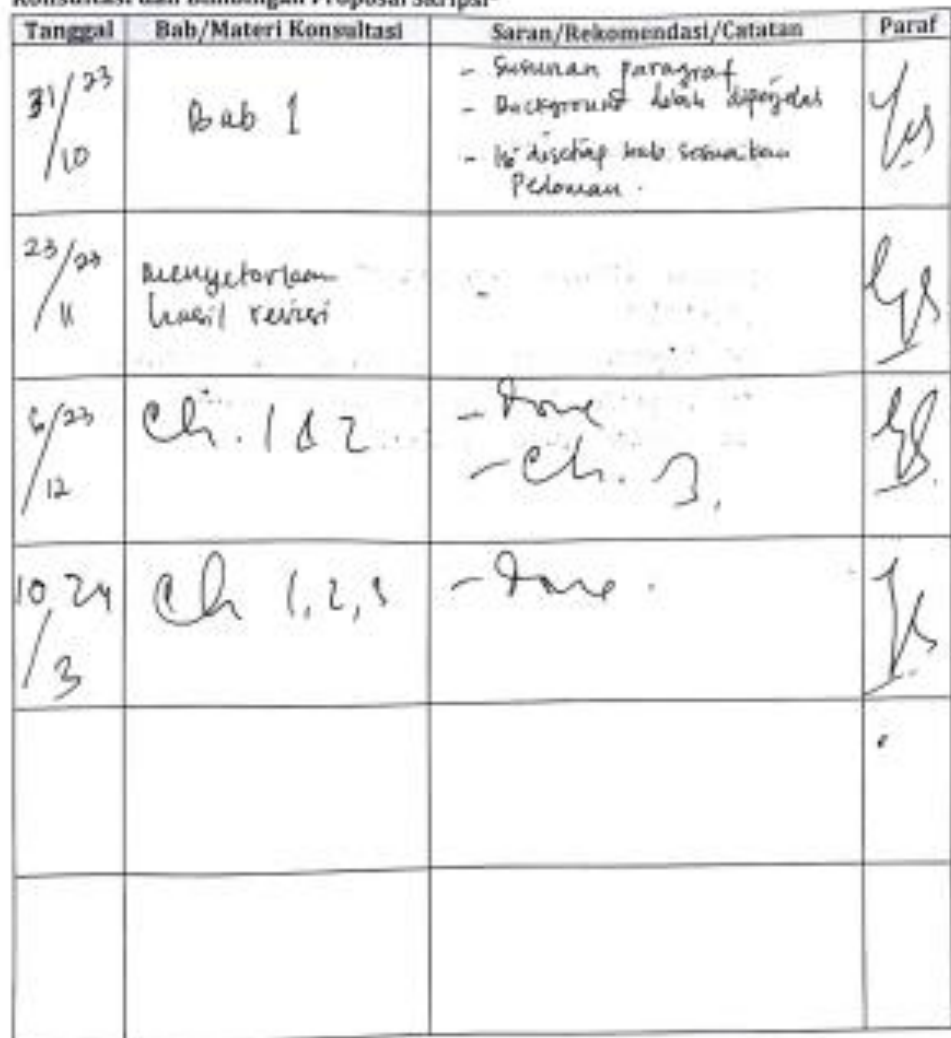 Konsultasi dan Bimbingan Proposal Skripsi
Tanggal Bab/Materi Konsultasi Saran/Rekomendasi/Catatan Paraf
31/23
/10
Bab 1
- Susunan paragraf
- Background lebih diperjelas
- Isi disetiap bab sesuaikan
Pedoman.
23/23
/11
Menyetorkan
hasil revisi
-
6/23
/12
Ch. 1 & 2
- Done
- Ch. 3.
10/24
/3
Ch 1, 2, 3
- Done.